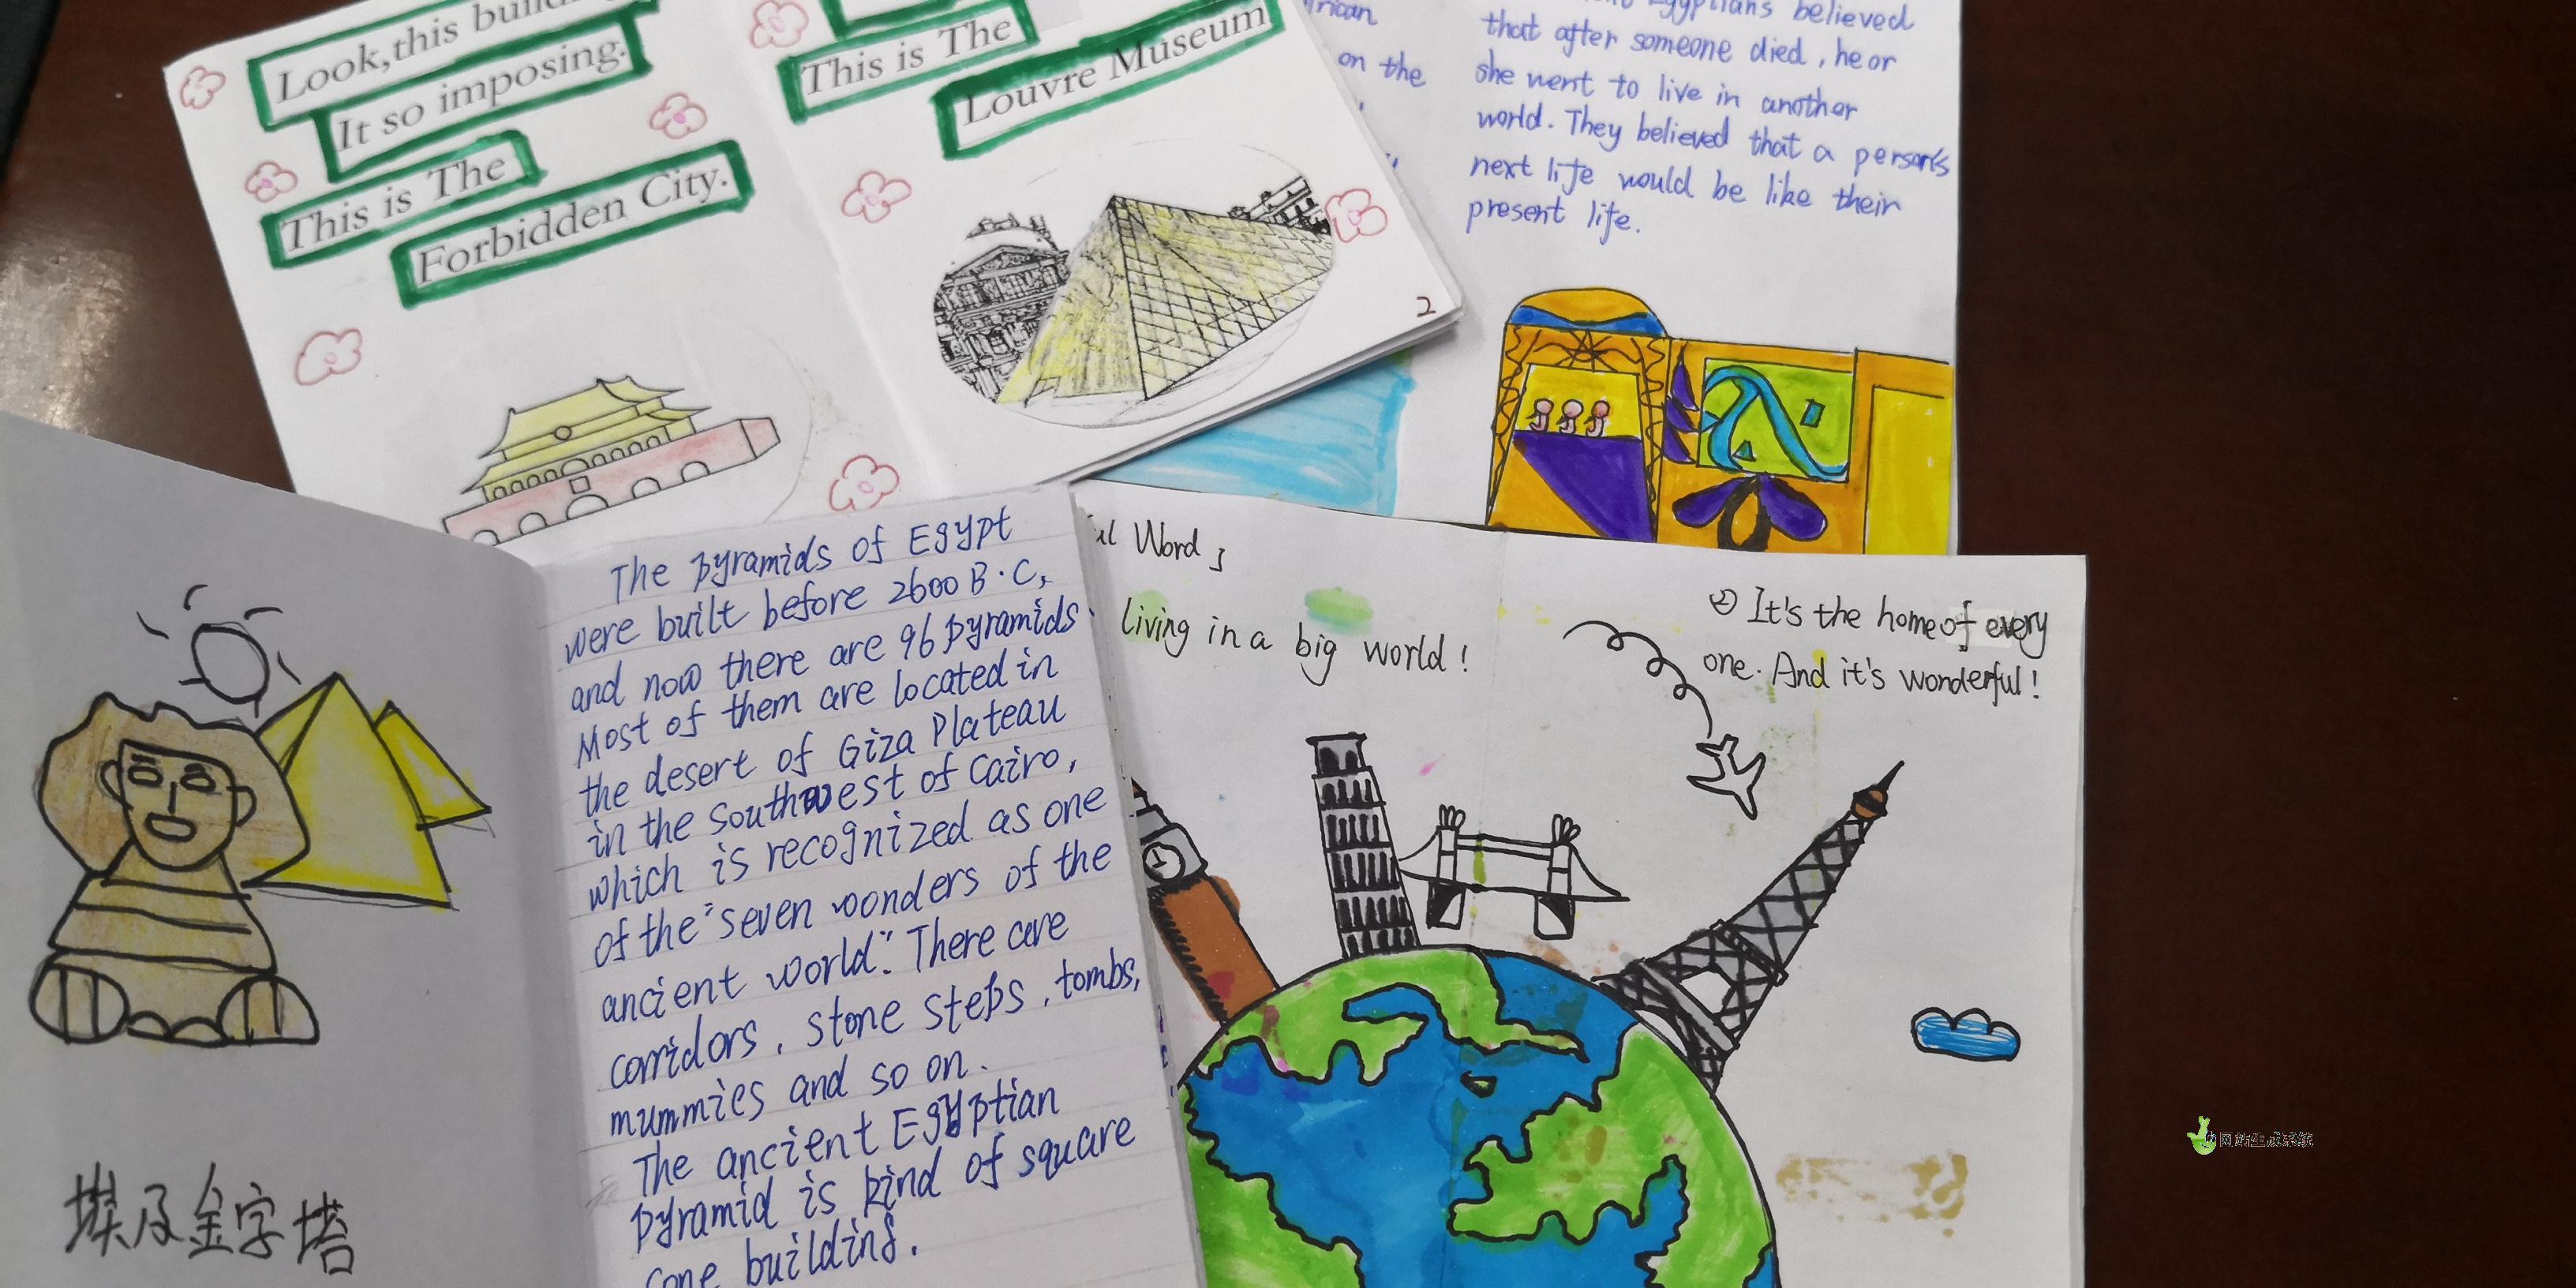 Look, this
It so imposing.
This is The
Forbidden City.
This is The
Louvre Museum
2
on the
Egyptians believed
that after someone died, he or
she went to live in another
world. They believed that a person's
next life would be like their
present life.
埃及金字塔
The pyramids of Egypt
were built before 2600 B.C,
and now there are 96 pyramids.
Most of them are located in
the desert of Giza Plateau
in the southwest of Cairo,
which is recognized as one
of the "seven wonders of the
ancient world". There are
corridors, stone steps, tombs,
mummies and so on.
The ancient Egyptian
pyramid is kind of square
cone building.
Word
living in a big world!
② It's the home of every
one. And it's wonderful!
网站生成系统